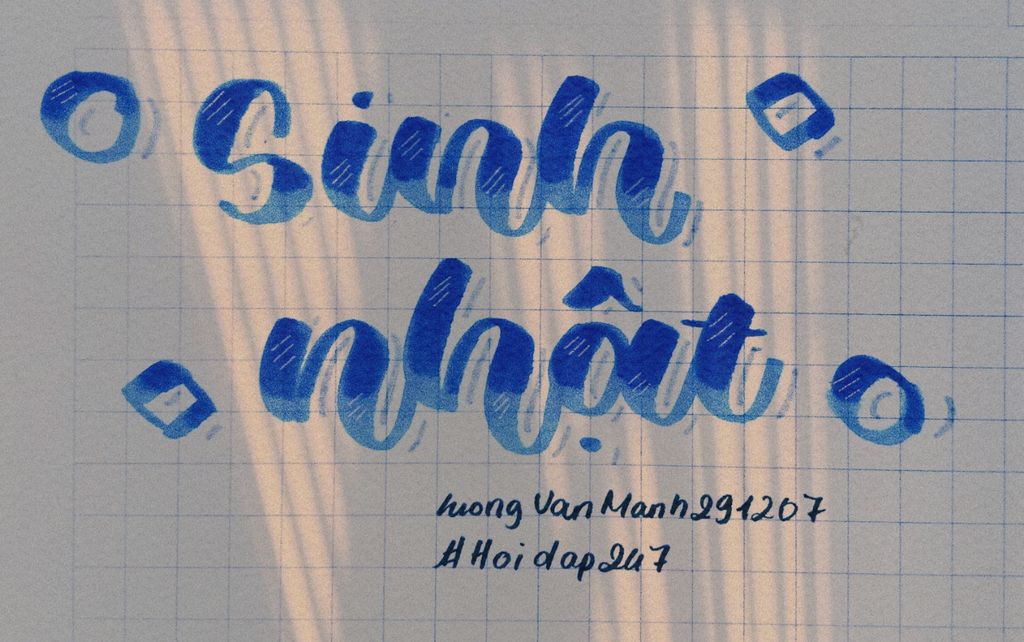 Sinh
nhật
luongVanManh291207
#Hoidap247